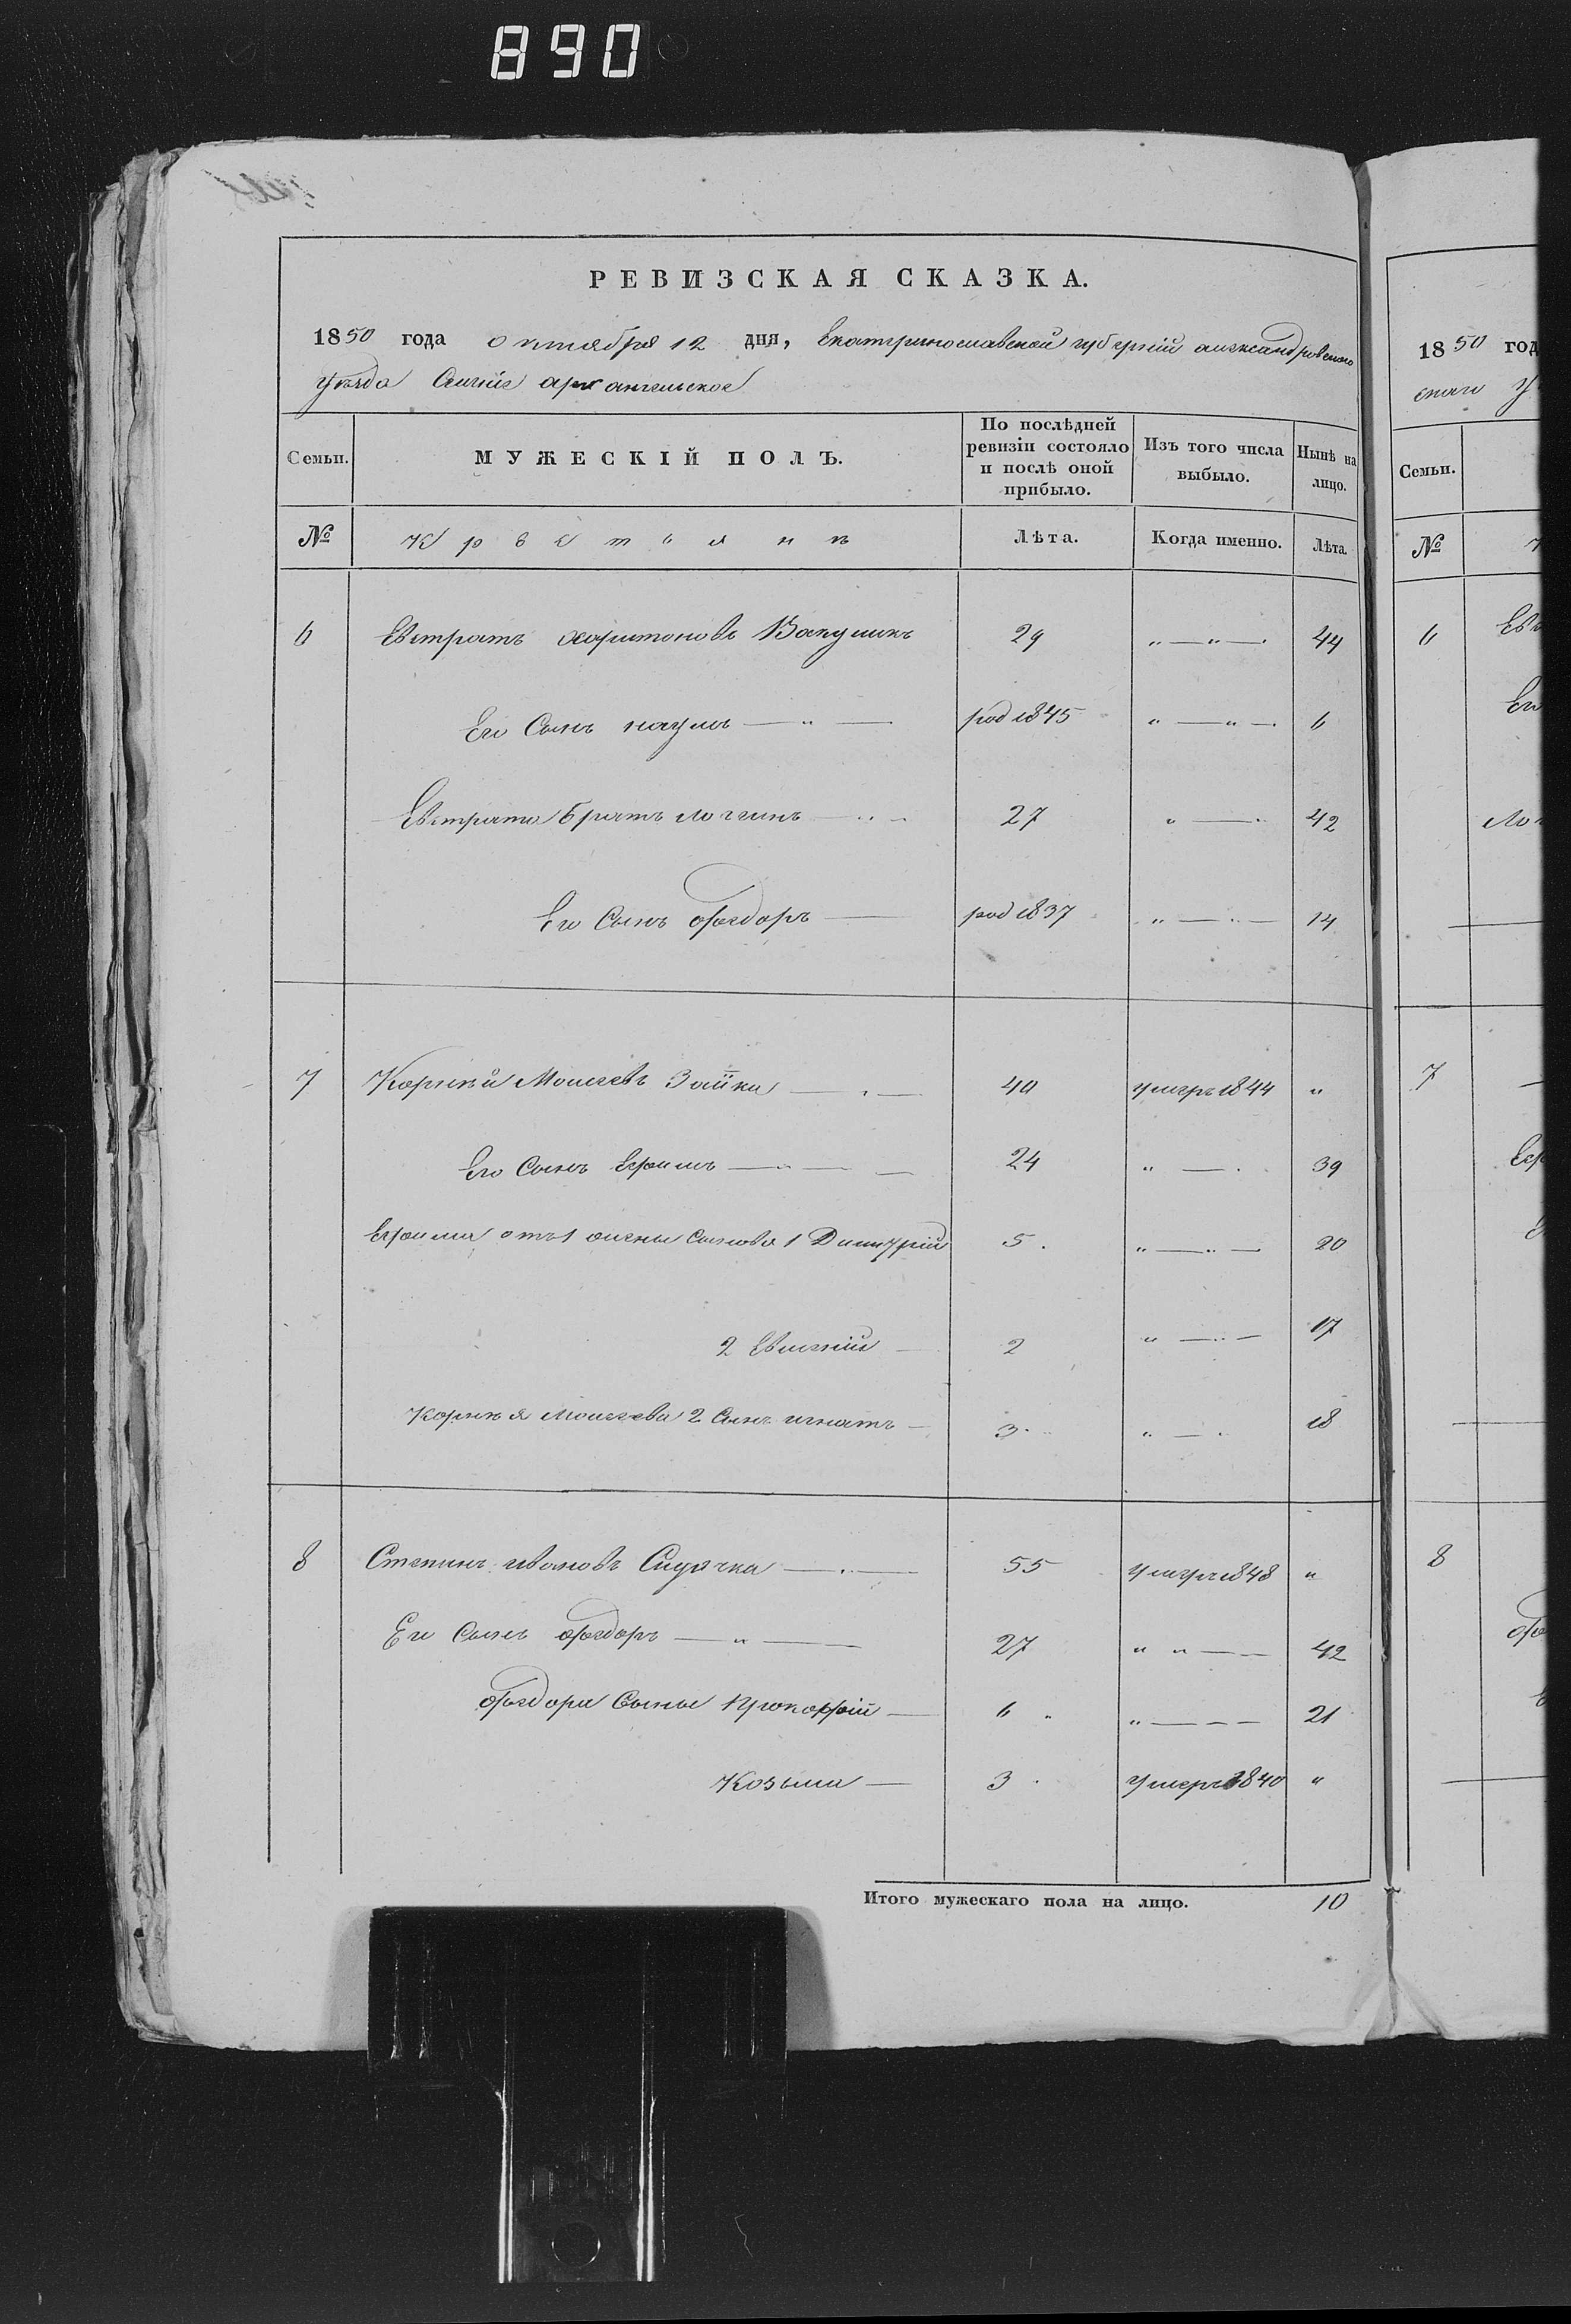 890
РЕВИЗСКАЯ СКАЗКА.
1850 года октября 12 дня, Екатеринославской губерніи александровского
уѣзда Селѣніе архангельское
Семьи.
МУЖЕСКІЙ ПОЛЪ.
По послѣдней ревизіи состояло и послѣ оной прибыло.
Изъ того числа выбыло.
Нынѣ на лицо.
№ Крестьянъ Лѣта. Когда именно. Лѣта.
6 Евстратъ харитоновъ 29 „ — „ — 44
Его Сынъ наумъ — „ — род 1845 „ — „ — 6
Евстрата братъ логгинъ — 27 „ — 42
Его Сынъ Фёдоръ — род 1837 „ — „ — 14
7 Корнѣй Моисеевъ Зайка — „ — 40 умеръ 1844 „
Его Сынъ Ефимъ — „ — 24 „ — 39
Ефима отъ 1 жены Сыновья 1 Димитрій 5 „ — „ — 20
2 Евгеній — 2 „ — „ — 17
Корнѣя Моисеева 2 Сынъ игнатъ — 3 „ — 18
8 Степанъ ивановъ — „ — 55 умеръ 1848 „
Его Сынъ Фёдоръ — „ — 27 „ „ — 42
Фёдора Сынъ Прокофій — 6 „ — 21
Козьма — 3 умеръ 1840 „
Итого мужескаго пола на лицо. 10
1850 год
скаго у
Семьи.
№
6
7
8